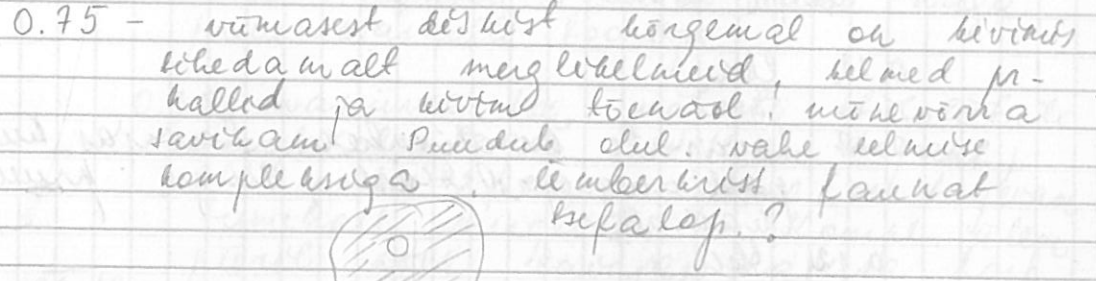 0.75 – viimasest diskist kõrgemal on kivimis
tihedamalt merglikelmeid, kelmed p-
kalled ja kivim tõenäol. mõnevõrra
savikam. Puudub olul. vahe eelmise
kompleksiga. ümberkrist faunat
tsefalop.?